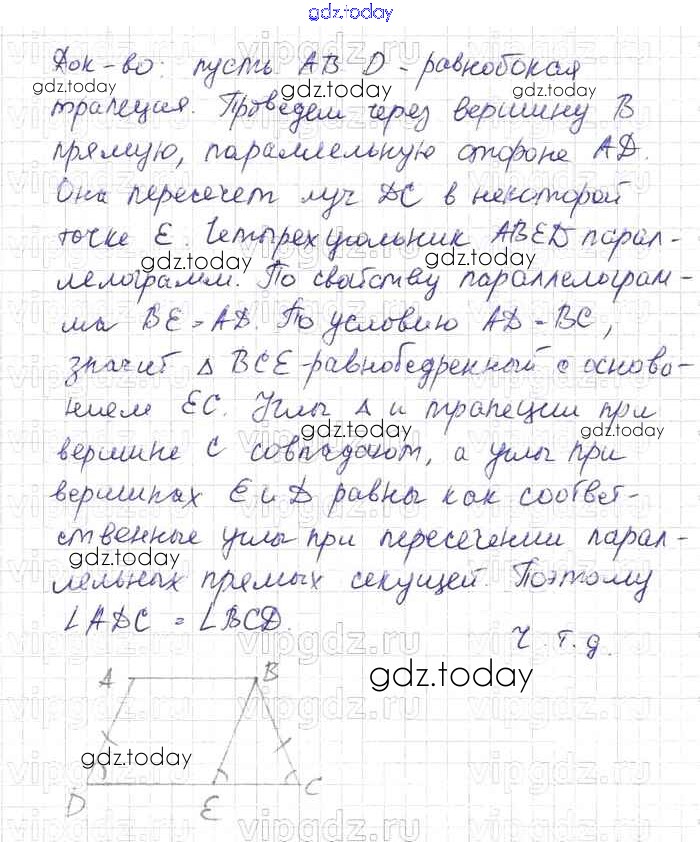 gdz.today
Док-во: пусть AB D - равнобокая
трапеция. Проведем через вершину B
прямую, параллельную стороне AD.
Она пересечет луч DC в некоторой
точке E. Четырехугольник ABED парал-
лелограмм. По свойству параллелограм-
ма BE = AD. По условию AD = BC,
значит △ BCE - равнобедренный с основа-
нием EC. Углы △ и трапеции при
вершине C совпадают, а углы при
вершинах E и D равны как соответ-
ственные углы при пересечении парал-
лельных прямых секущей. Поэтому
∠ADC = ∠BCD.
Ч. т. д.
gdz.today
A B
gdz.today
D E C